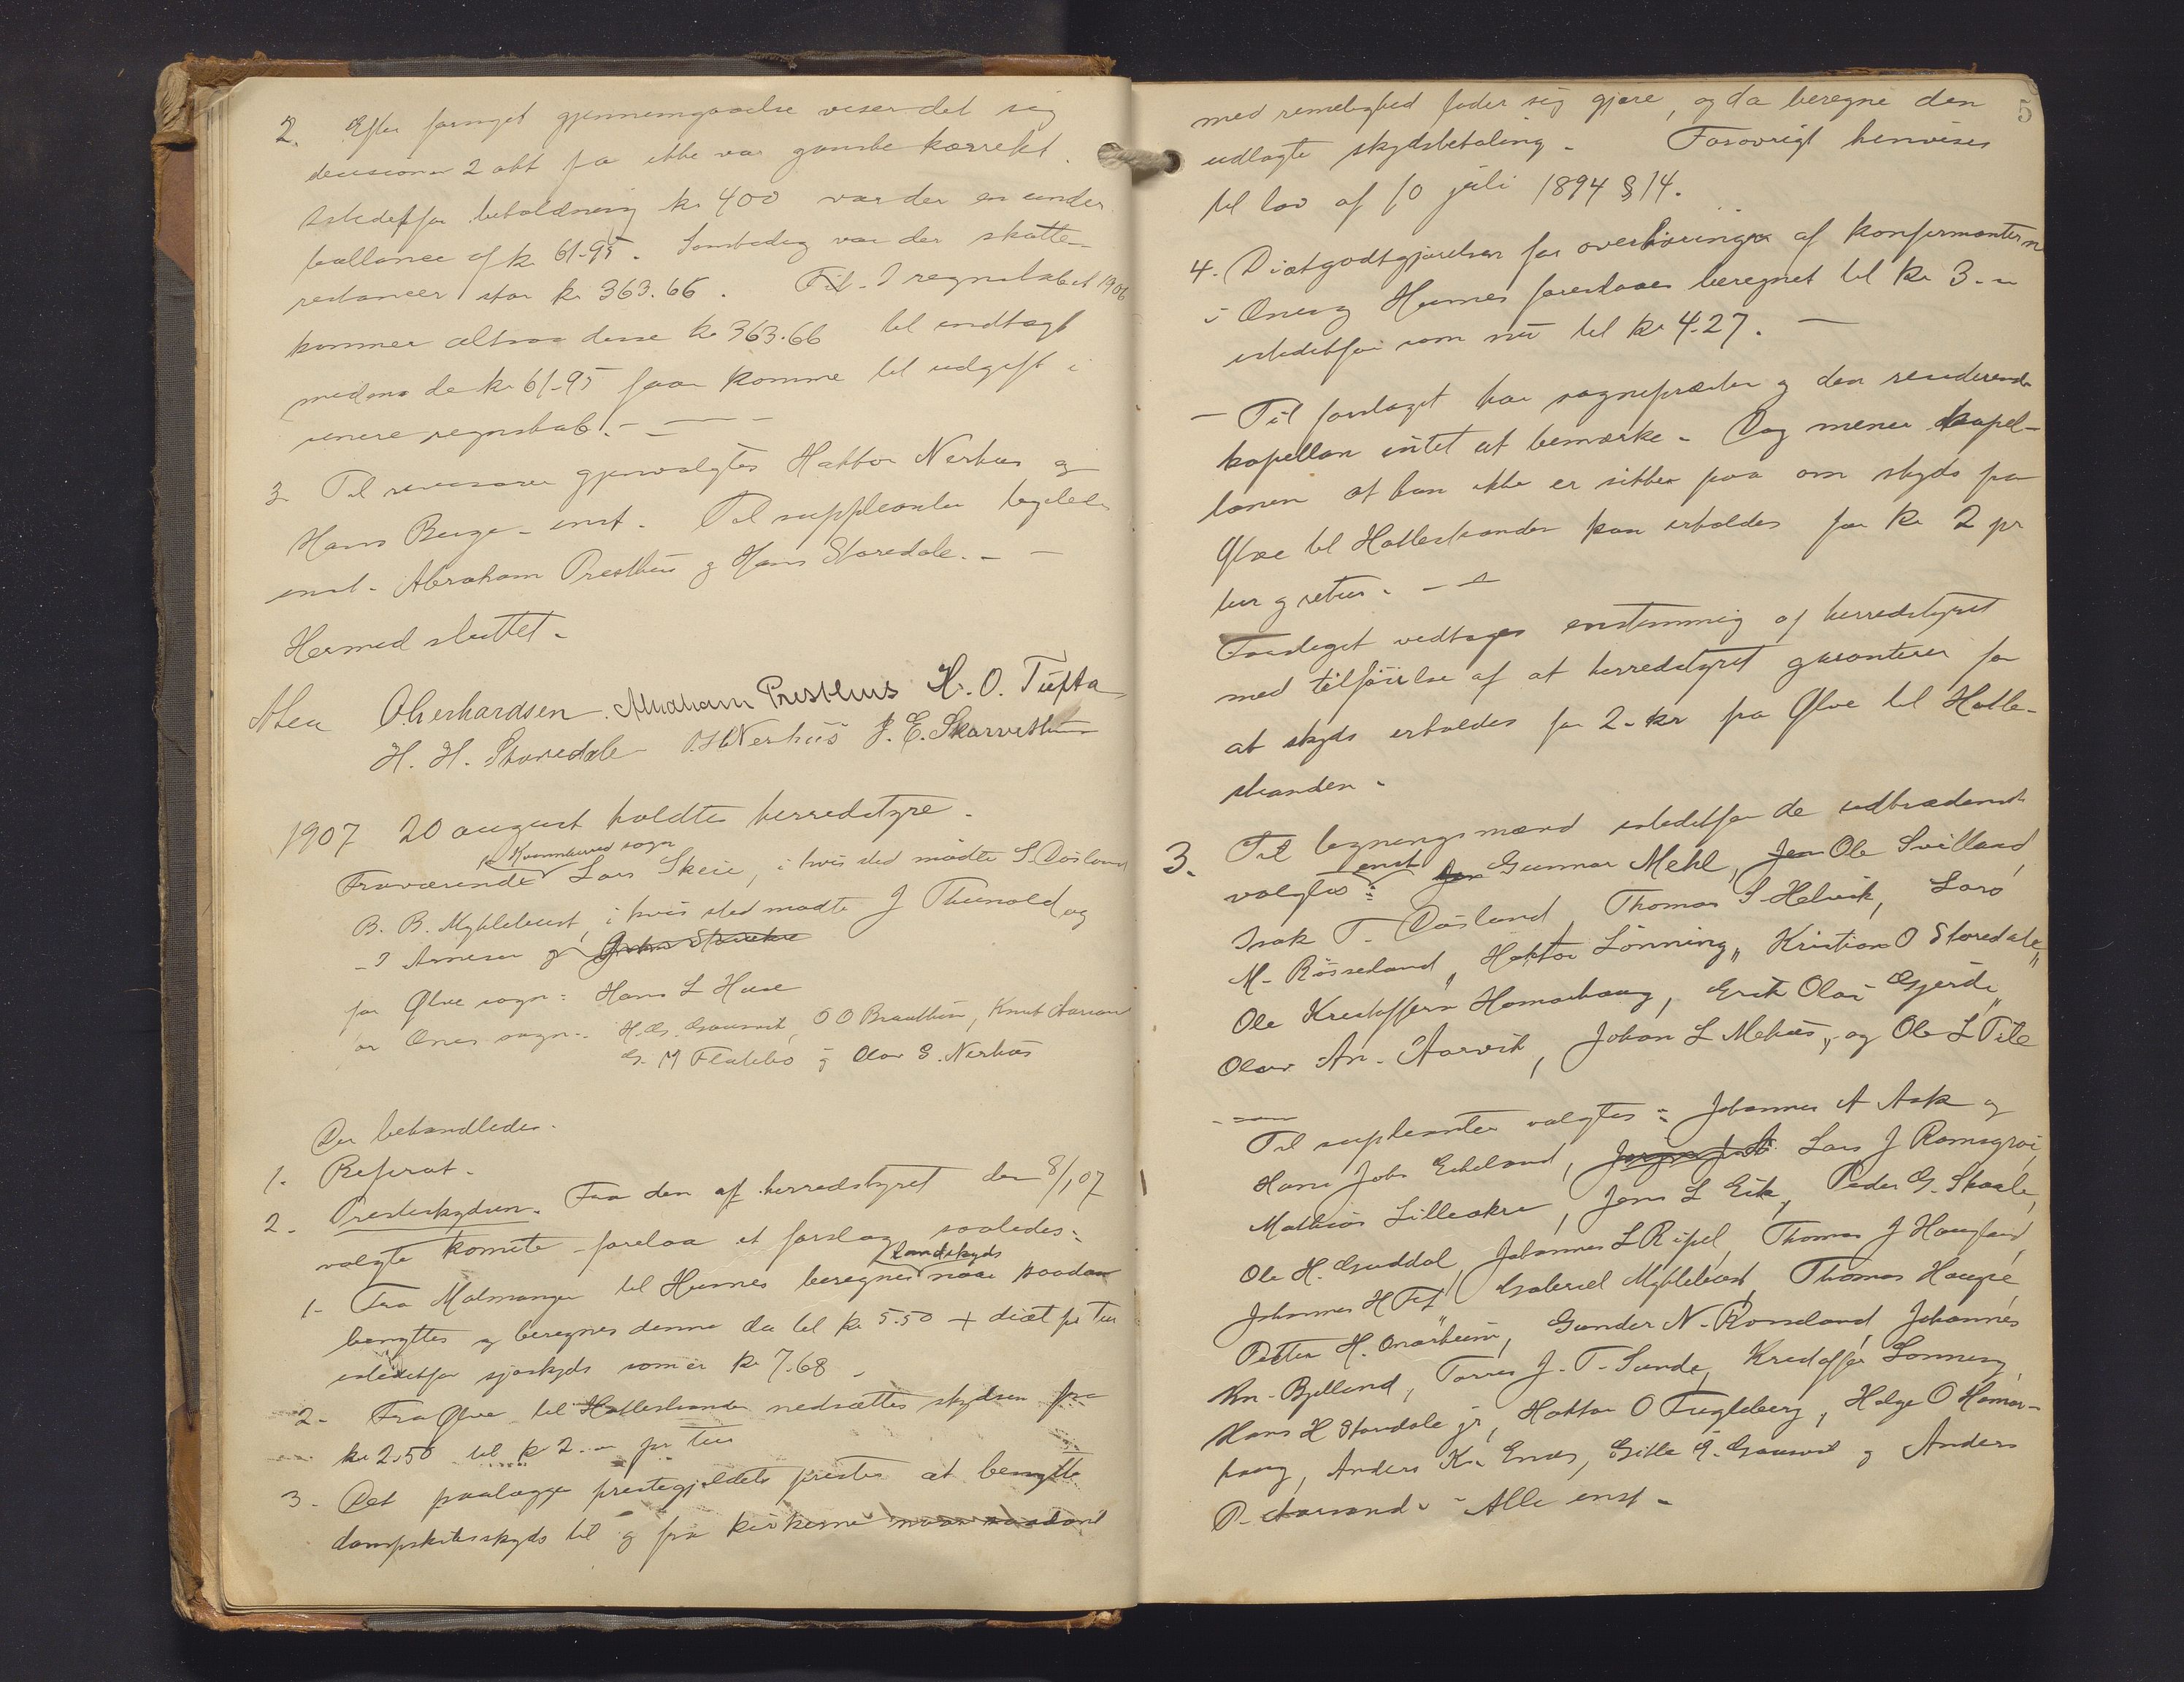 2. Efter fornyet gjennemgaaelse viser det sig
decisionen 2 okt fa ikke var ganske korrekt.
Istedetfor beholdning kr 400 var der en under
ballance af kr 61.95. Samtidig var der skatte-
restancer stor kr 363.66. Til I regnskabet 1906
kommer altsaa disse kr 363.66 til indtægt
medens de kr 61.95 faar komme til udgift i
senere regnskab. -
3. Til revisorer gjenvalgtes Haktor Nerhus og
Hans Berge - enst. Til suppleanter
enst. Abraham Presthus og Hans Storedale. -
Hermed sluttet.
Oluf Gerhardsen. Abraham Presthus H. O. Tufta
H. H. Storedale O. H. Nerhus J. E. Skarvatun
1907 20 august holdtes herredstyre.
fr Kvinnherred sogn
Fraværende Lars Skeie, i hvis sted mødte S. Døsland
B. B. Myklebust, i hvis sted mødte J Thunold og
- I Arnesen og
for Ølve sogn: Hans L Huse
for Ænes sogn: H. G. Gausvik, O O Braathun, Knut Aarsand
G. M Flatebø og Olav G. Nerhus
Der behandledes.
1. Referat.
2. Presteskydsen. Fra den af herredstyret den 8/1 07
valgte komite forelaa et forslag saaledes:
landskyds
1- Fra Malmanger til Husnes beregnes naar saadan
benyttes og beregnes denne da til kr 5.50 + diæt pr tur
istedetfor sjøskyds som er kr 7.68
2- Fra Ølve til Hatlestranden nedsættes skydsen fra
kr 2.50 til kr 2.- pr tur
3- Det paalægges prestegjeldets prester at benytte
dampskibsskyds til og fra kirkerne naar saadant
5
med rimelighed lader sig gjøre, og da beregne den
udlagte skydsbetaling. Forøvrigt henvises
til lov af 10 juli 1894 § 14.
4. Diætgodtgjørelsen for overhøringen af konfirmanterne
i Ænes og Husnes foreslaaes beregnet til kr 3.-
istedetfor som nu til kr 4.27. -
- Til forslaget har sognepræsten og den residerende
kapellan intet at bemærke. Dog mener kapel-
lanen at han ikke er sikker paa om skyds fra
Ølve til Hatlestranden kan erholdes for kr 2 pr
tur og retur. -
Forslaget vedtages enstemmig af herredstyret
med tilføielse af at herredstyret garanterer for
at skyds erholdes for 2.- kr fra Ølve til Hatle-
stranden.
3. Til ligningsmænd istedetfor de udtrædende
valgtes enst: Jon Gunnar Mehl, Jon Ole Svilland,
Isak T. Døsland, Thomas S Helvik, Lars
M. Røsseland, Haktor Lønning, Kristian O Storedale,
Ole Kristoffersn Hamarhaug, Erik Olai Gjerde,
Olav An. Aarvik, Johan L Mehus, og Ole L Tile
Til supleanter valgtes: Johannes A Ask og
Hans Johs Eikeland, Lars J Ramsgrø,
Mathias Lilleakre, Jens L Eik, Peder G. Skaale,
Ole H. Guddal, Johannes L Ripel, Thomas J Haugland,
Johannes H Fet, Gabriel Myklebust, Thomas Hauge,
Petter H. Onarheim, Gunder N. Rosseland, Johannes
Kn. Bjelland, Torres J. T. Sunde, Kristoffer Lønning,
Hans H Storedale jr, Haktor O Fugleberg, Helge O Hamar-
haug, Anders Kn. Enes, Gitle G. Gausvik og Anders
P. Aarsand. - Alle enst.